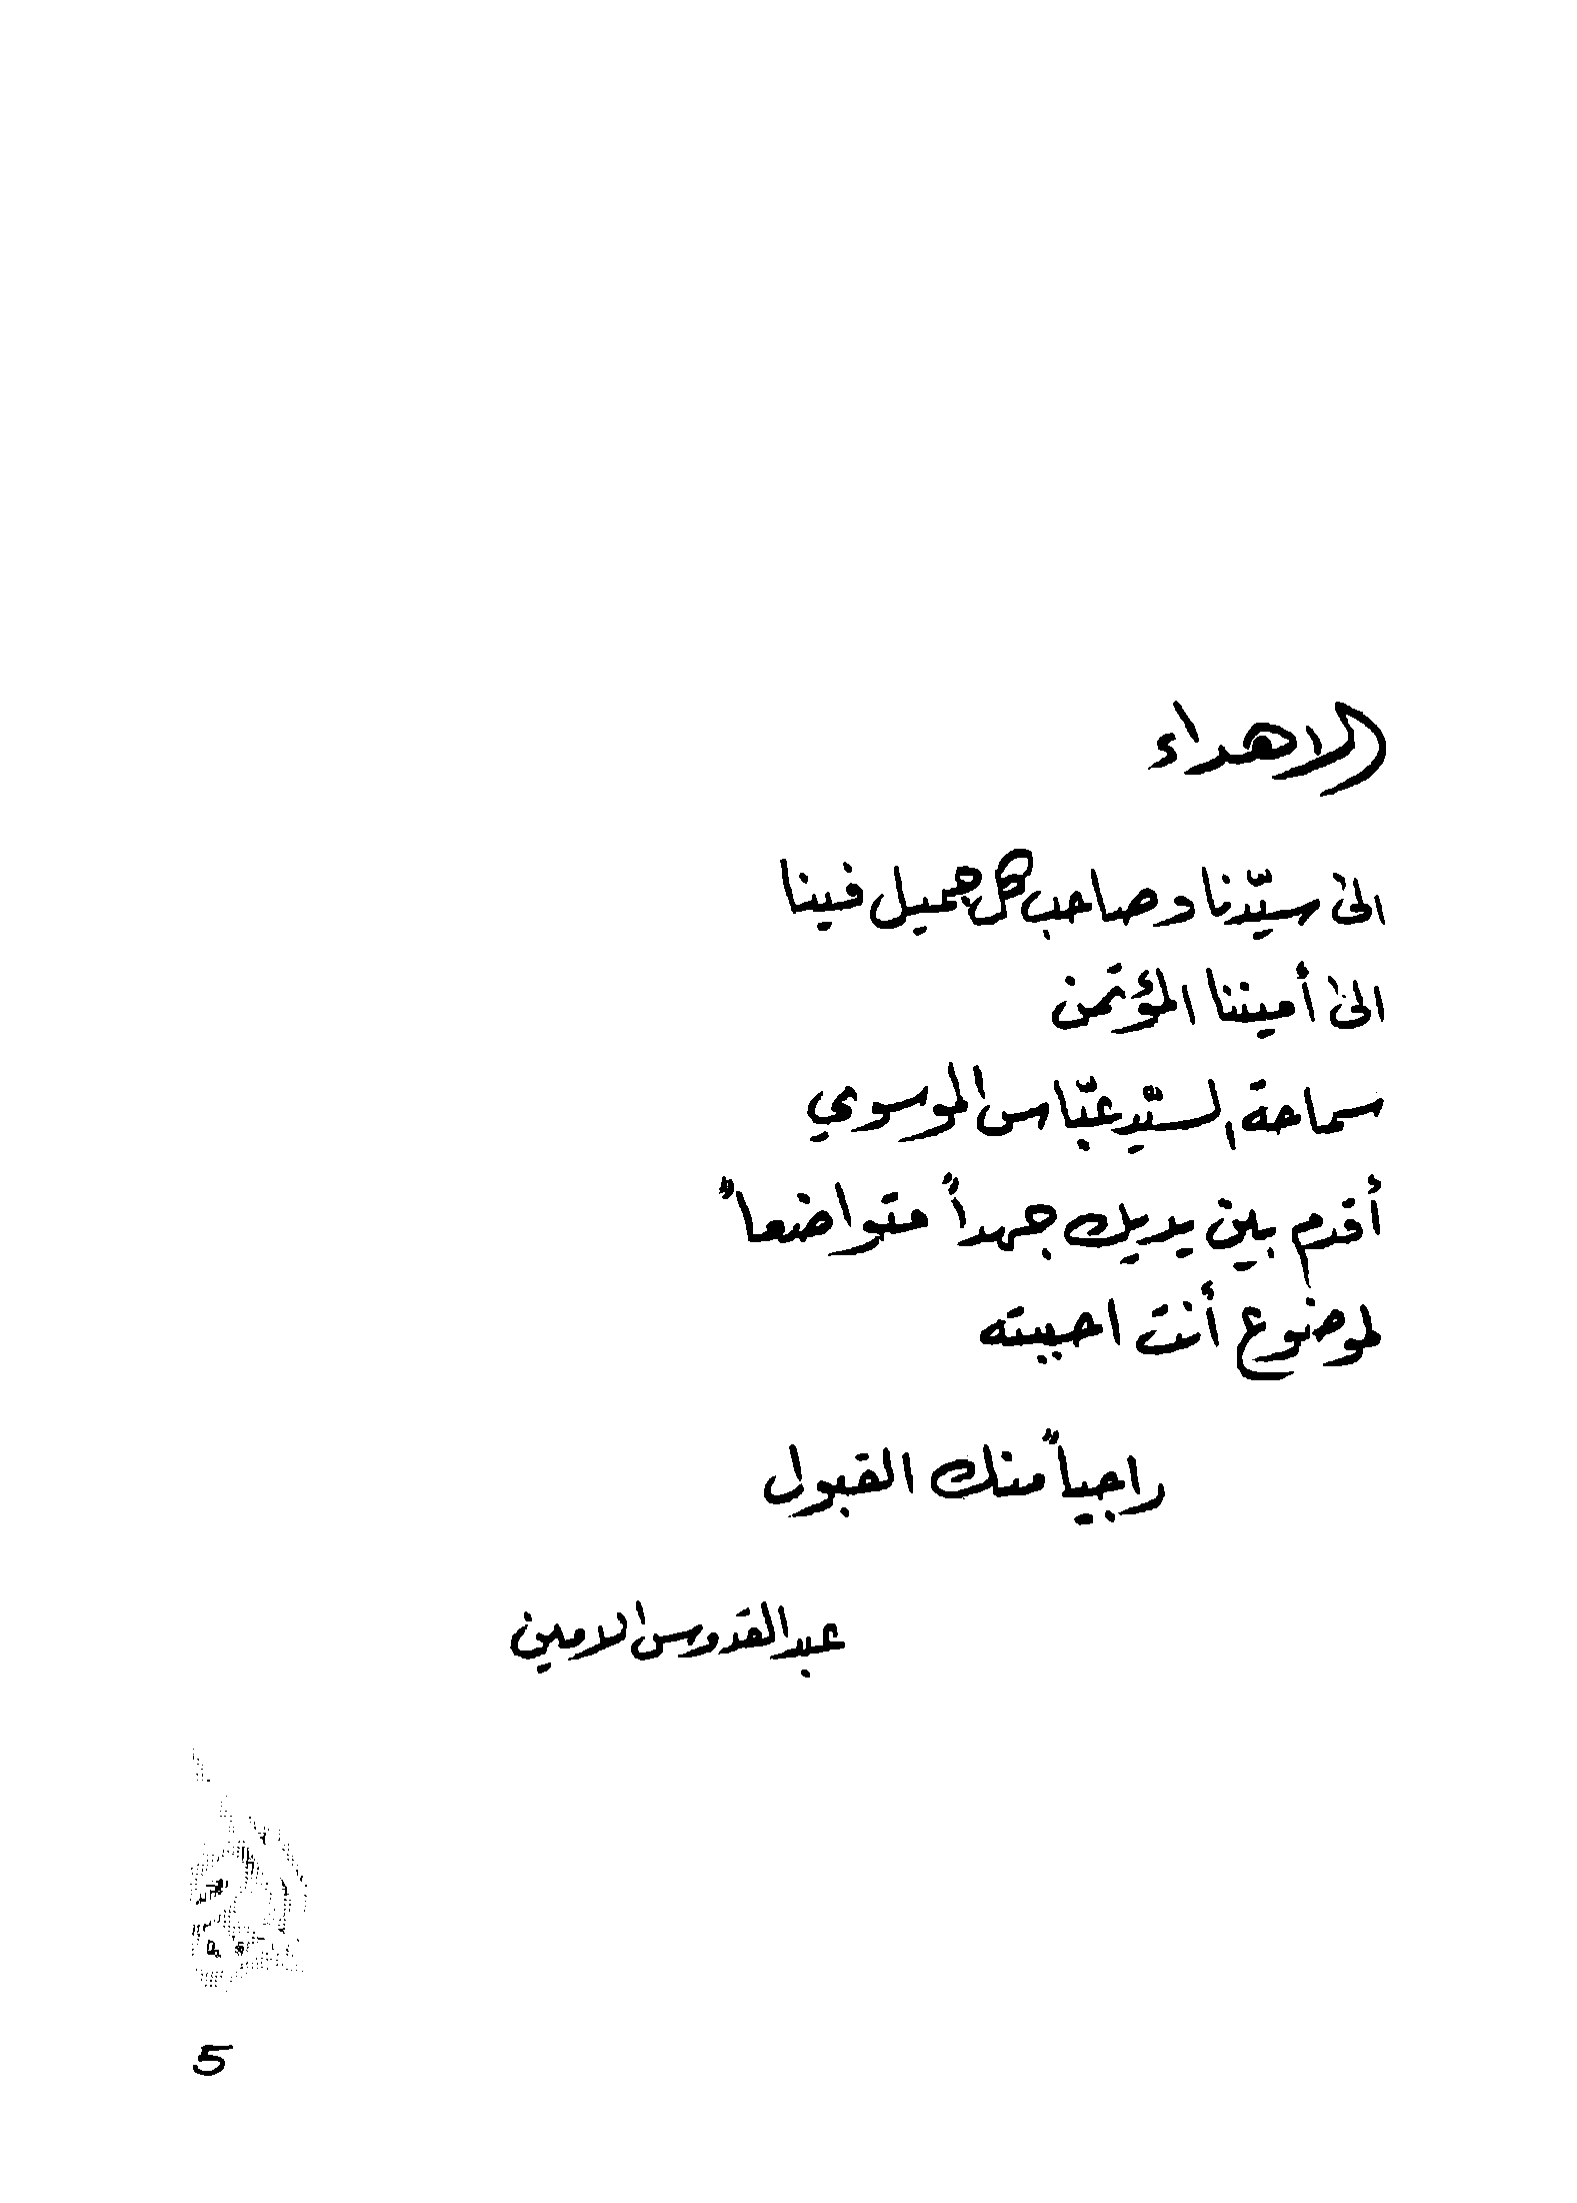 الاهداء
الى سيّدنا وصاحب كل جميل فينا
الى أميننا المؤتمن
سماحة السيّد عبّاس الموسوي
أقدم بين يديك جهداً متواضعاً
لموضوع أنت احببته
راجياً منك القبول
عبد القدوس الامين
5